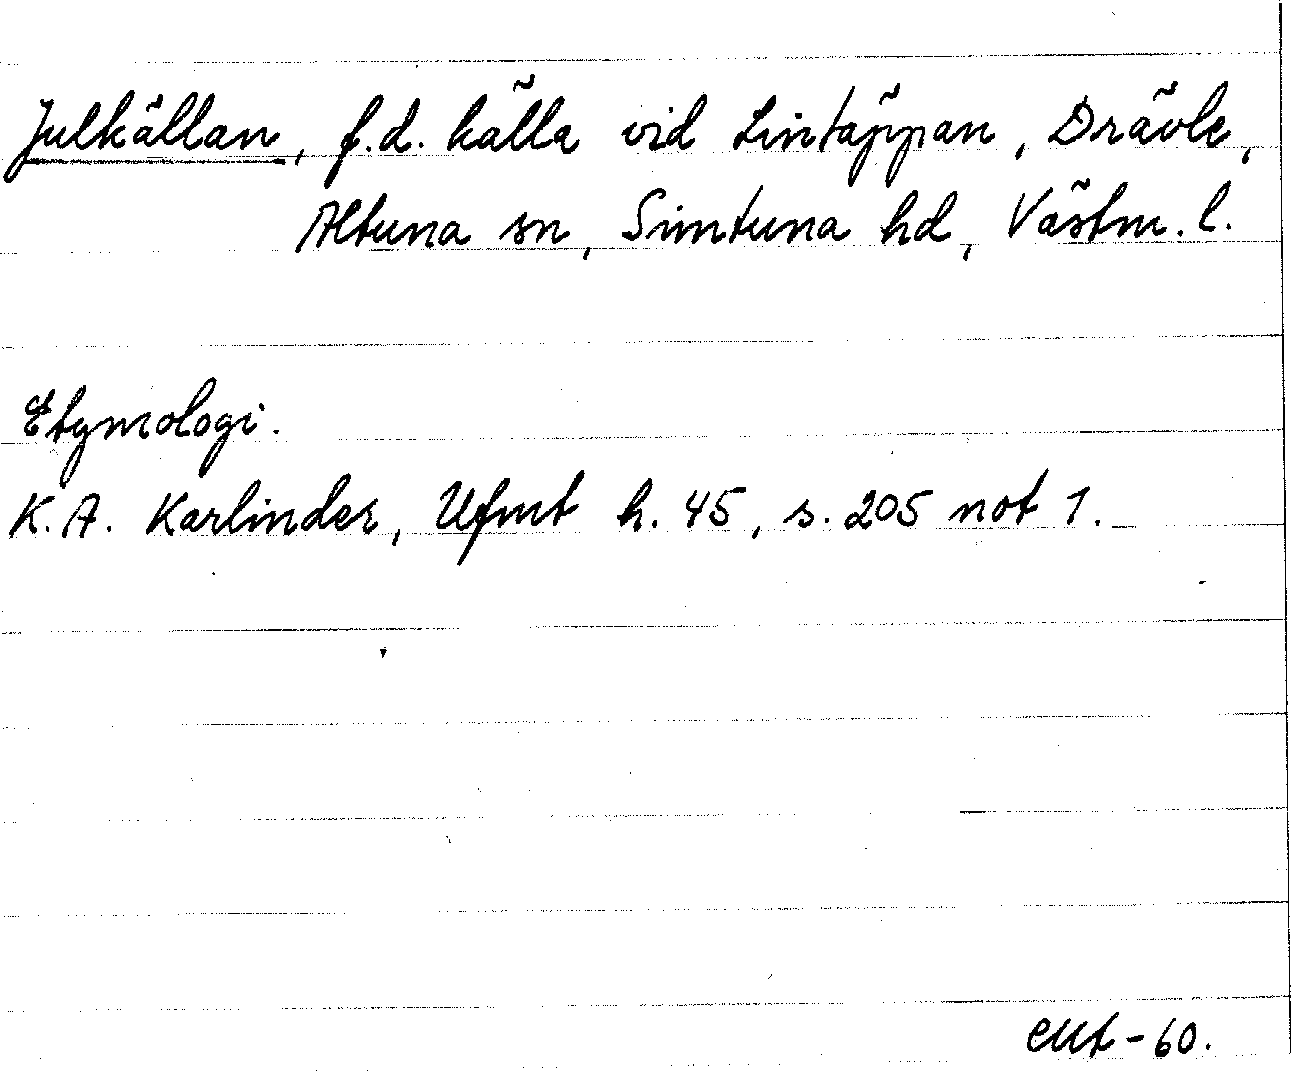 Julkällan, f.d. källa vid Lintäppan, Drävle,
Altuna sn, Simtuna hd, Västm. l.
Etymologi.
K. A. Karlinder, Ufmt h. 45, s. 205 not 1.
-60.